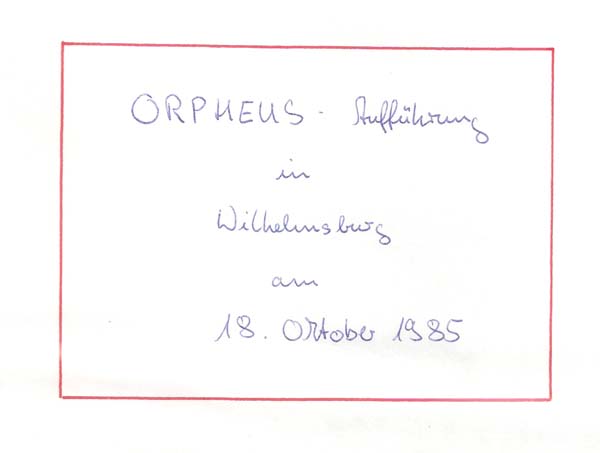 ORPHEUS - Aufführung
in
Wilhelmsburg
am
18. Oktober 1985